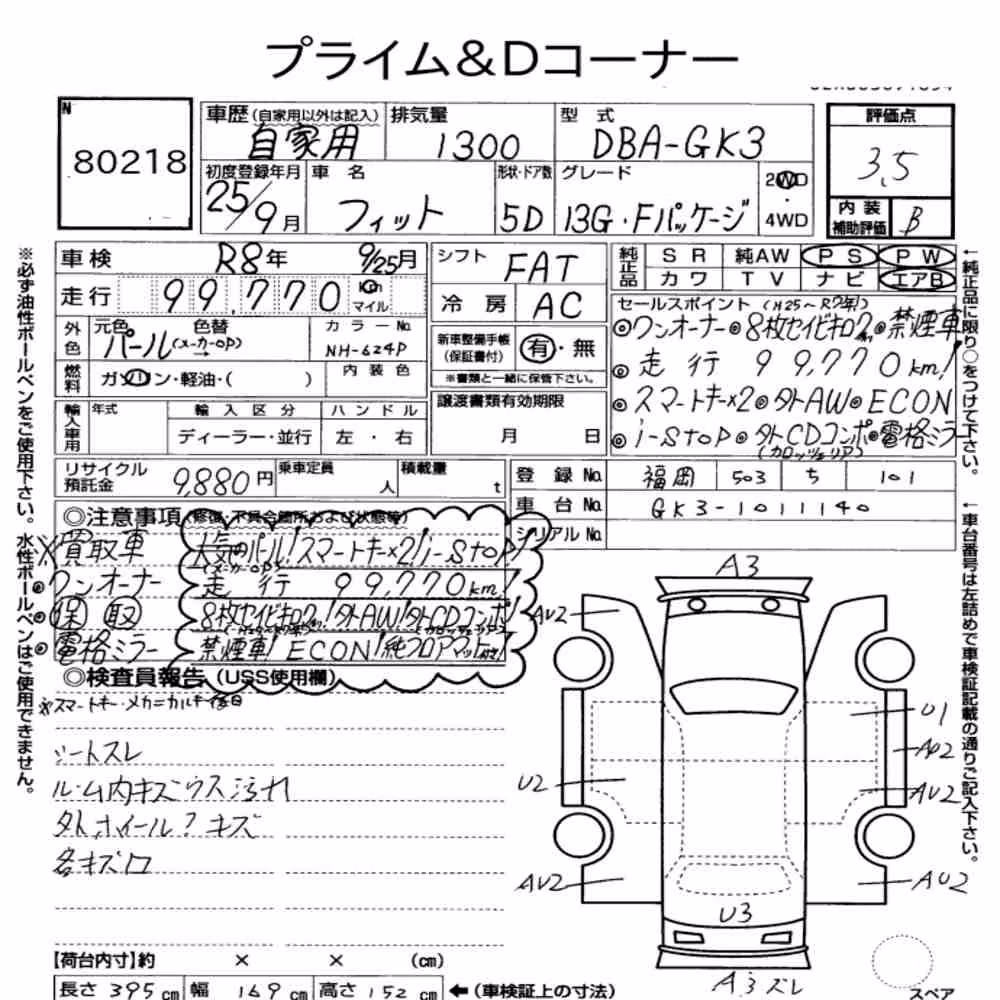 プライム&Dコーナー
N
80218
車歴(自家用以外は記入)
自家用
排気量
1300
型式
DBA-GK3
評価点
3.5
内装
補助評価
B
初度登録年月
25/9月
車名
フィット
形状・ドア数
5D
グレード
13G・Fパッケージ
2WD
・
4WD
車検
R8年 9/25月
走行
99,770 Km
マイル
シフト
FAT
冷房
AC
純正品
SR 純AW PS PW
カワ TV ナビ エアB
外色
元色 色替
パール(メーカーOP)→
カラーNo.
NH-624P
燃料
ガソリン・軽油・( )
内装色
新車整備手帳
(保証書付)
有・無
※書類と一緒に保管下さい。
セールスポイント (H25~R7年)
◎ワンオーナー◎8枚セイビキロク◎禁煙車
◎走行 99,770km!
◎スマートキー×2◎外AW◎ECON
◎i-STOP◎外CDコンポ◎電格ミラー
(カロッツェリア)
輸入車用
年式
輸入区分
ディーラー・並行
ハンドル
左・右
譲渡書類有効期限
月 日
リサイクル
預託金
9,880円
乗車定員
人
積載量
t
登録No.
福岡 503 ち 101
車台No.
GK3-1011140
シリアルNo.
◎注意事項(修復・不具合箇所および状態等)
※買取車
◎ワンオーナー
◎保取
◎電格ミラー
人気のパール!スマートキー×2!i-STOP!
(メーカーOP)
走行 99,770km!
8枚セイビキロク!外AW!外CDコンポ!
(カロッツェリア)
禁煙車!ECON!純フロアマット付!
◎検査員報告(USS使用欄)
シートスレ
ルーム内キズシウス汚れ
外ホイール?キズ
各キズ
A3
AU2
U1
AU2
U2
AU2
AU2
AU2
U3
A3ズレ
スペア
【荷台内寸】約 × × (cm)
長さ 395cm 幅 169cm 高さ 152cm ←(車検証上の寸法)
※必ず油性ボールペンをご使用下さい。水性ボールペンはご使用できません。
←純正品に限り○をつけて下さい。
←車台番号は左詰めで車検証記載の通りご記入下さい。